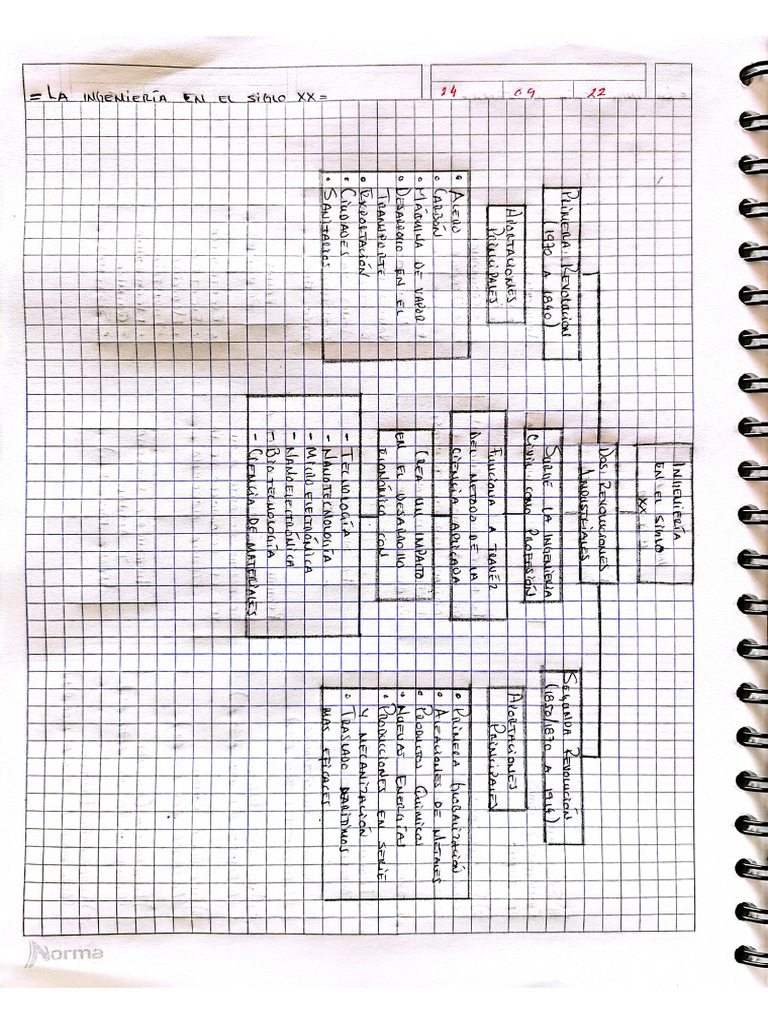 = LA INGENIERÍA EN EL SIGLO XX =
24 09 22
INGENIERÍA
EN EL SIGLO
XX
DOS REVOLUCIONES
INDUSTRIALES
PRIMERA REVOLUCION
(1970 A 1840)
APORTACIONES
PRINCIPALES
• ACERO
• CARBÓN
• MÁQUINA DE VAPOR
• DESARROLLO EN EL
TRANSPORTE
• EXPORTACIÓN
• CIUDADES
• SANITARIOS
SURGE LA INGENIERIA
CIVIL COMO PROFESIÓN
FUNCIONA A TRAVEZ
DEL METODO DE LA
CIENCIA APLICADA
CREA UN IMPACTO
EN EL DESARROLLO
ECONÓMICO CON
- TECNOLOGÍA
- NANOTECNOLOGÍA
- MICROELECTRÓNICA
- NANOELECTRÓNICA
- BIOTECNOLOGÍA
- CIENCIA DE MATERIALES
SEGUNDA REVOLUCIÓN
(1850/1870 A 1914)
APORTACIONES
PRINCIPALES
• PRIMERA GLOBALIZACIÓN
• ALEACIONES DE METALES
• PRODUCTOS QUIMICOS
• NUEVAS ENERGÍAS
• PRODUCCIONES EN SERIE
Y MECANIZACIÓN
• TRASLADO MARITIMOS
MAS EFICACES
Norma